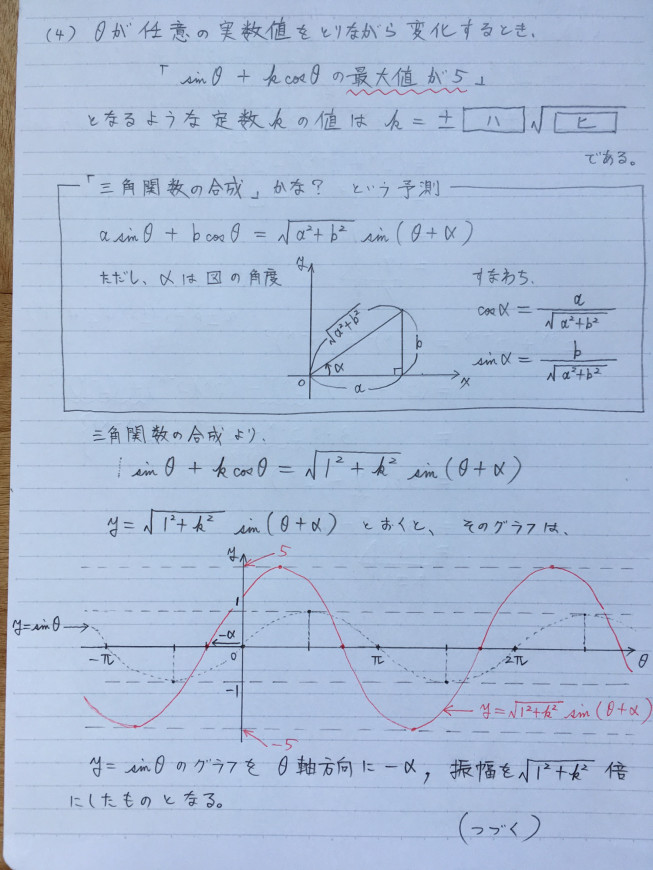 (4) θが任意の実数値をとりながら変化するとき、
「 sinθ + k cosθ の最大値が5 」
となるような定数kの値は k = ± ハ √ヒ
である。
「三角関数の合成」かな? という予測
a sinθ + b cosθ = √a²+b² sin(θ+α)
ただし、αは図の角度
すなわち、
cosα = a/√a²+b²
sinα = b/√a²+b²
y
√a²+b²
b
α
O
a
x
三角関数の合成より、
1 sinθ + k cosθ = √1²+k² sin(θ+α)
y = √1²+k² sin(θ+α) とおくと、 そのグラフは、
y
5
1
y=sinθ
-α
-π
0
π
2π
θ
-1
y=√1²+k² sin(θ+α)
-5
y = sinθ のグラフを θ軸方向に -α , 振幅を √1²+k² 倍
にしたものとなる。
(つづく)